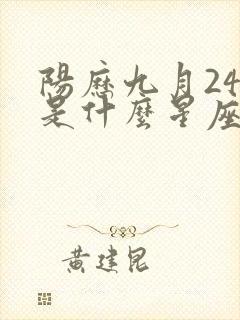 陽歷九月24
是什麼星座
黃建昆